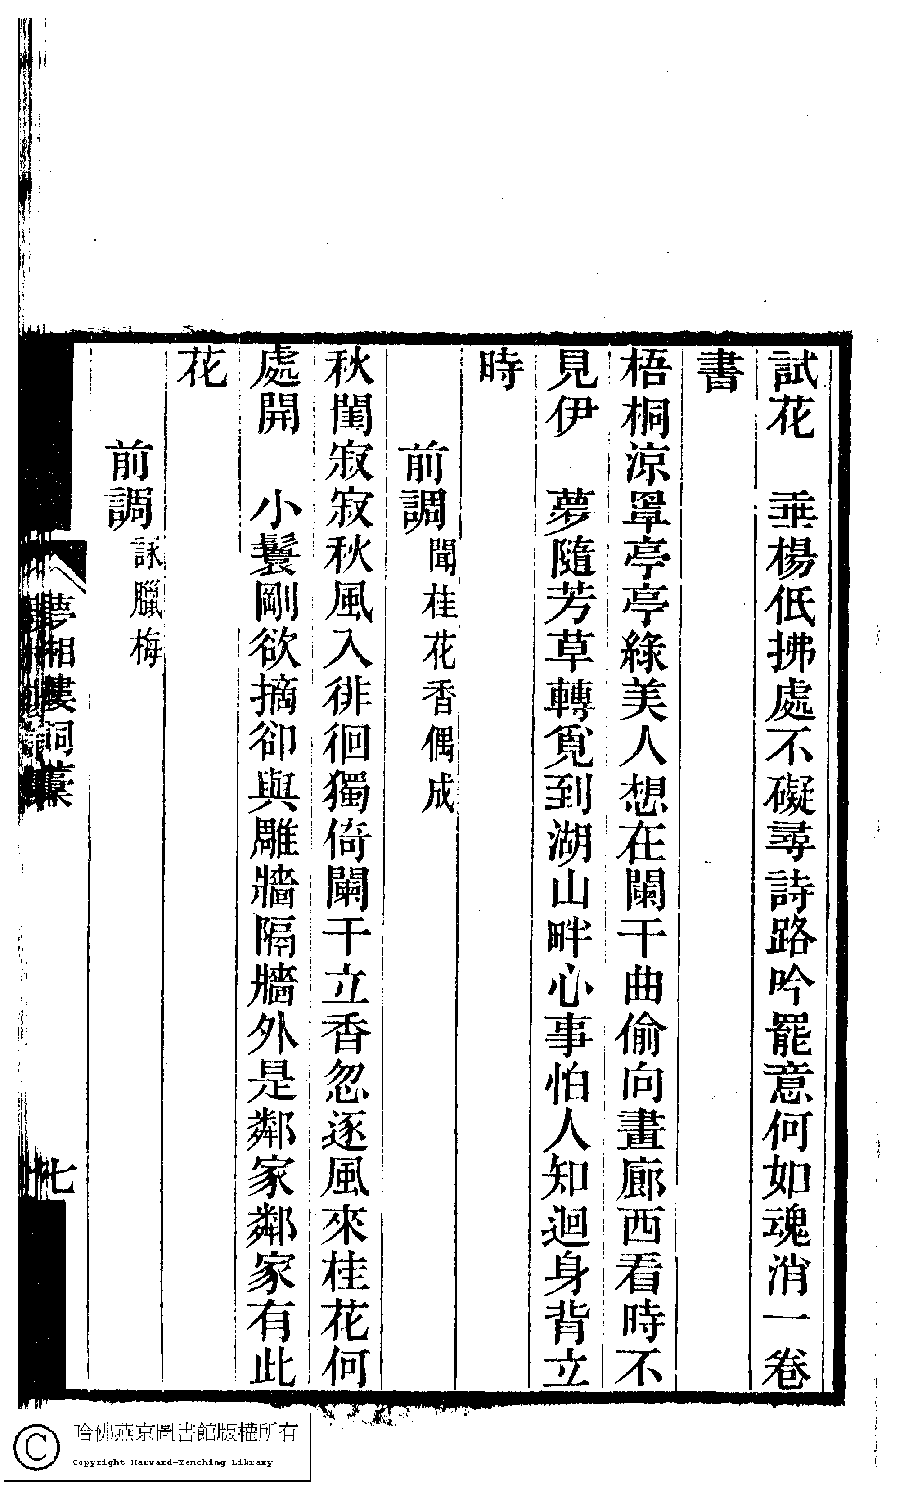 試花　垂楊低拂處不礙尋詩路吟罷意何如魂消一卷
書
梧桐涼罩亭亭綠美人想在闌干曲偷向畫廊西看時不
見伊　夢隨芳草轉覓到湖山畔心事怕人知迴身背立
時
前調聞桂花香偶成
秋閨寂寂秋風入徘徊獨倚闌干立香忽逐風來桂花何
處開　小鬟剛欲摘卻與雕牆隔牆外是鄰家鄰家有此
花
前調詠臘梅
夢湘樓詞藁
七
哈佛燕京圖書館版權所有
Copyright Harvard-Yenching Library